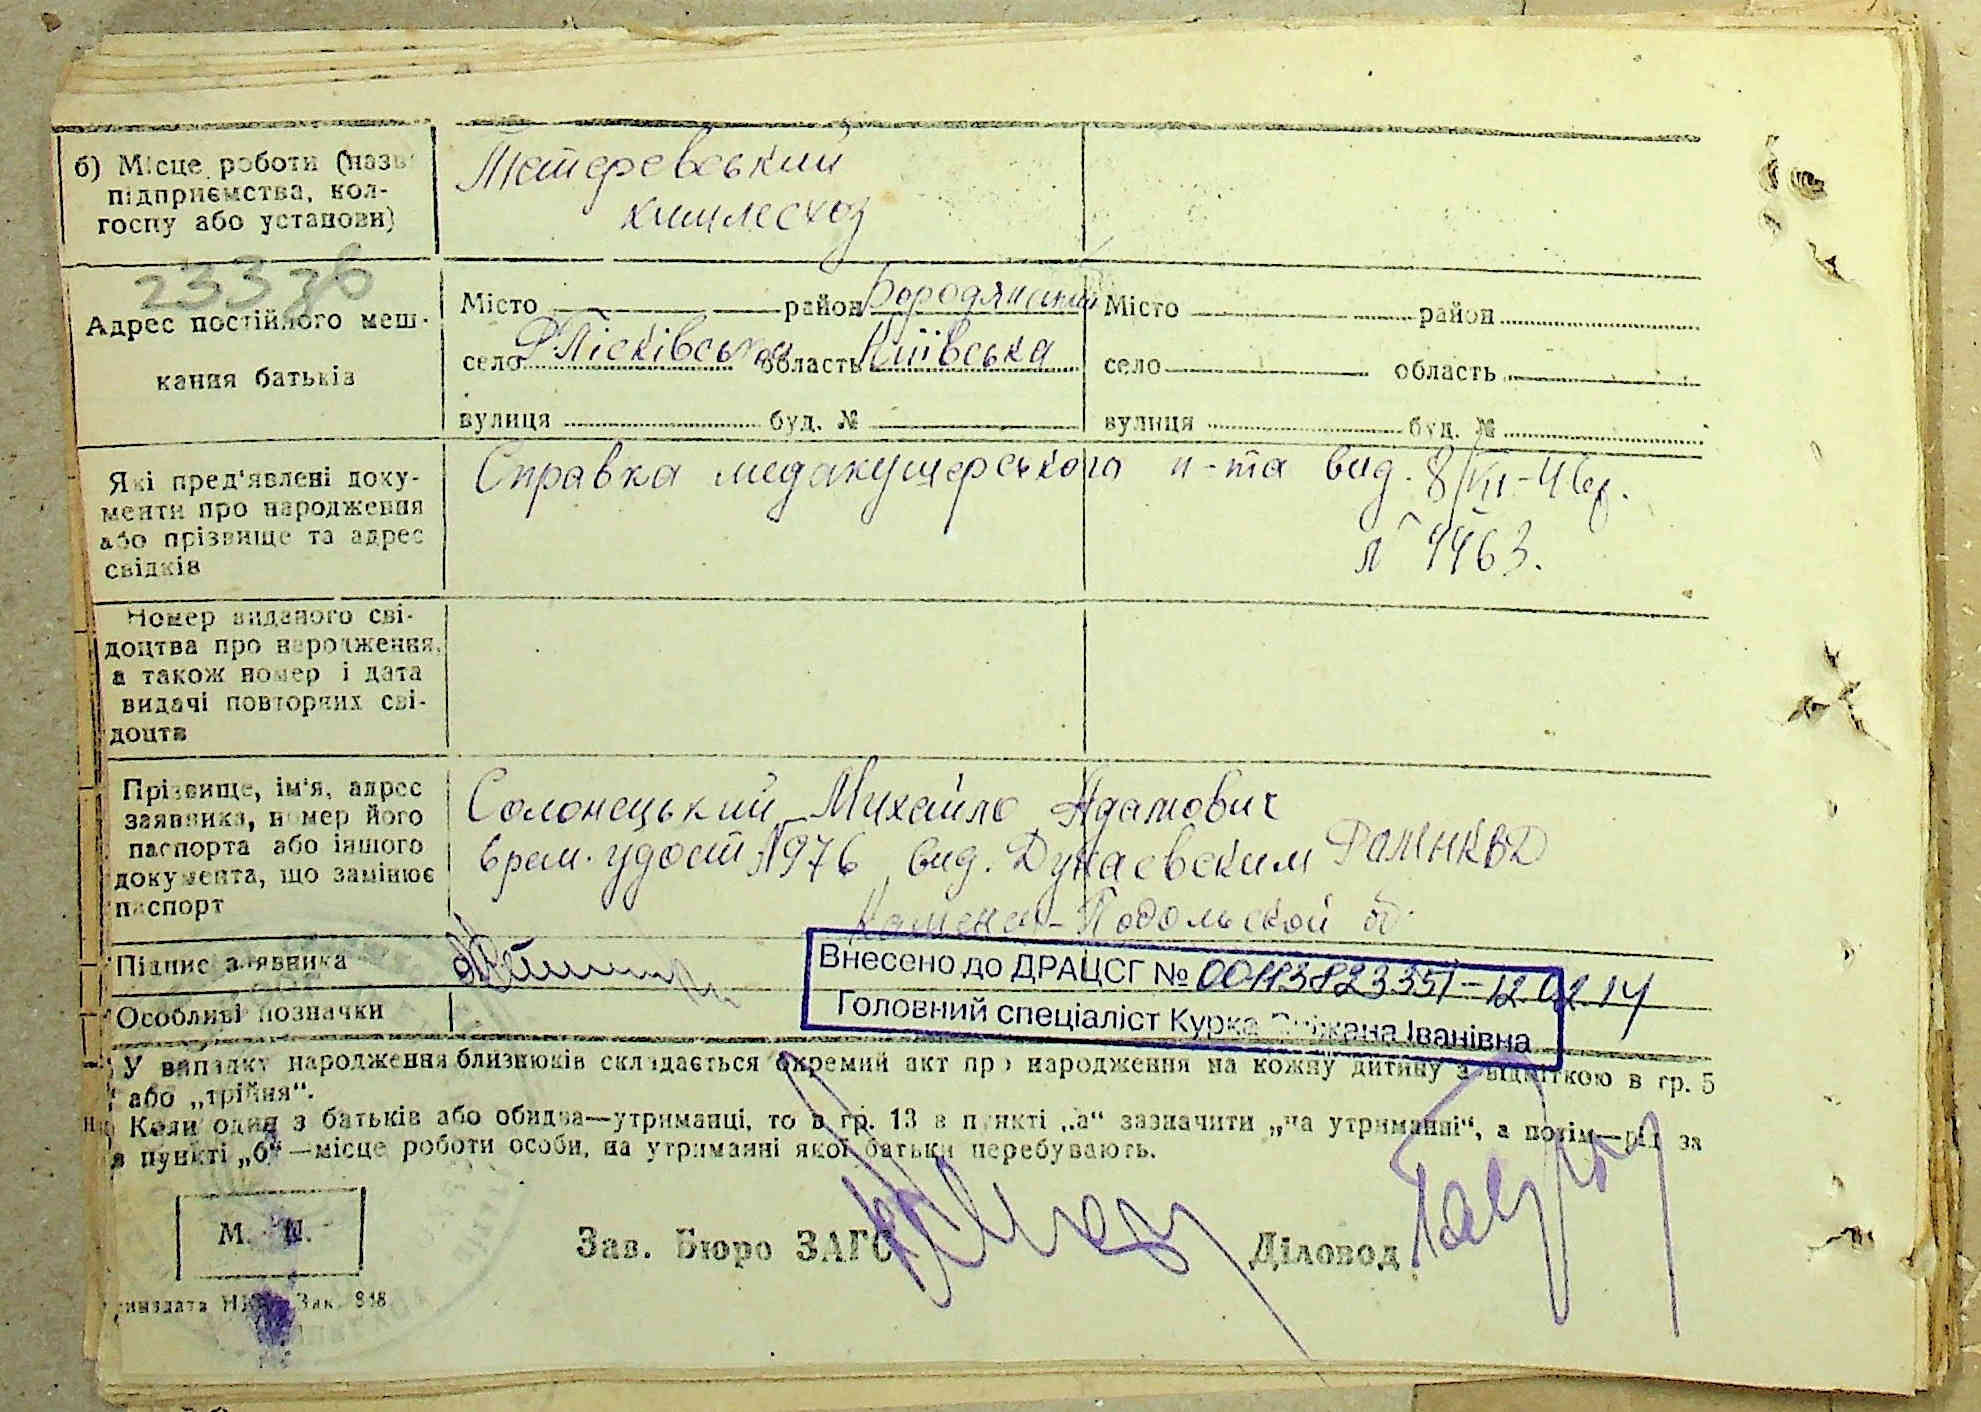 б) Місце роботи (назв
підприємства, кол-
госпу або установи)
Тетеревський
хімлесхоз
233 зв
Адрес постійного меш-
кання батьків
Місто район Бородянський Місто район
село Р. Пісківська область Київська село область
вулиця буд. № вулиця буд. №
Які пред'явлені доку-
менти про народження
або прізвище та адрес
свідків
Справка медакушерського п-та вид. 8/VII-46р.
№ 4463.
Номер виданого сві-
доцтва про народження,
а також номер і дата
видачі повторних сві-
доцтв
Прізвище, ім'я, адрес
заявника, номер його
паспорта або іншого
документа, що замінює
паспорт
Солонецький Михайло Адамович
врем. удост №976 вид. Дунаевским РОМНКВД
Каменец-Подольской об.
Підпис заявника
Внесено до ДРАЦСГ № 00113823351 - 12.02.14
Особливі позначки
Головний спеціаліст Курка Іванівна
У випадку народження близнюків складається окремий акт про народження на кожну дитину з відміткою в гр. 5
або „трійня“.
Коли один з батьків або обидва—утриманці, то в гр. 13 в пункті „а“ зазначити „на утриманні“, а потім—рід за
в пункті „б“—місце роботи особи, на утриманні якої батьки перебувають.
М. П.
Зав. Бюро ЗАГС Діловод
Зак. 918